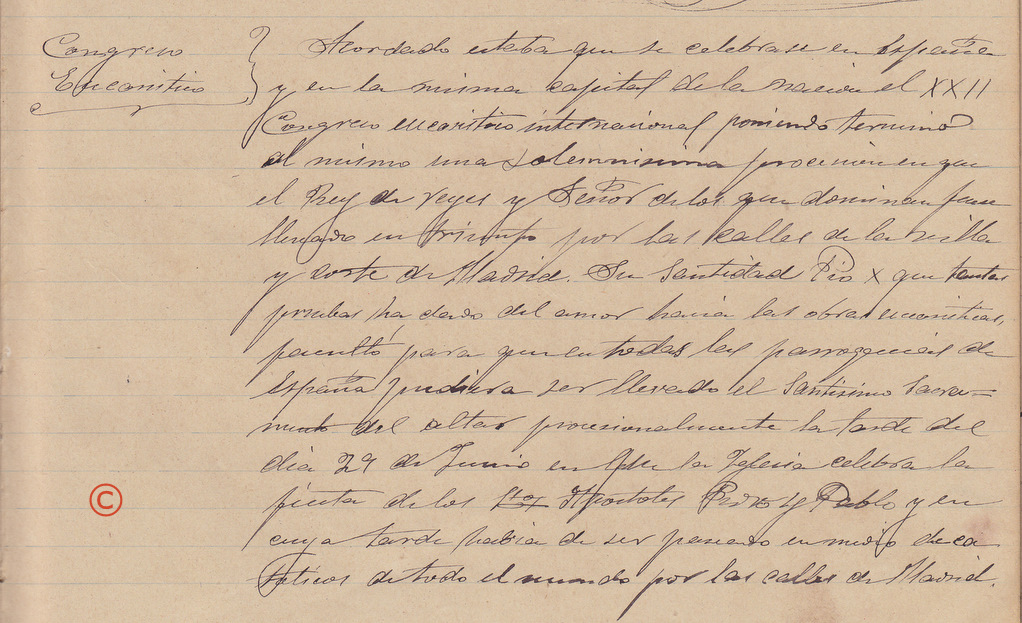 Congreso
Eucaristico
Acordado estaba que se celebrase en España
y en la misma capital de la nación el XXII
Congreso eucaristico internacional poniendo termino
al mismo una solemnisima procesión en que
el Rey de reyes y Señor de los que dominan fuese
llevado en triunfo por las calles de la villa
y corte de Madrid. Su Santidad Pio X que tantas
pruebas ha dado del amor hacia las obras eucaristicas,
facultó para que en todas las parroquias de
España pudiera ser llevado el Santisimo Sacra=
mento del altar procesionalmente la tarde del
dia 29 de Junio en que la Iglesia celebra la
fiesta de los Stos Apostoles Pedro y Pablo y en
cuya tarde habia de ser paseado en medio de ca
tolicos de todo el mundo por las calles de Madrid.
©